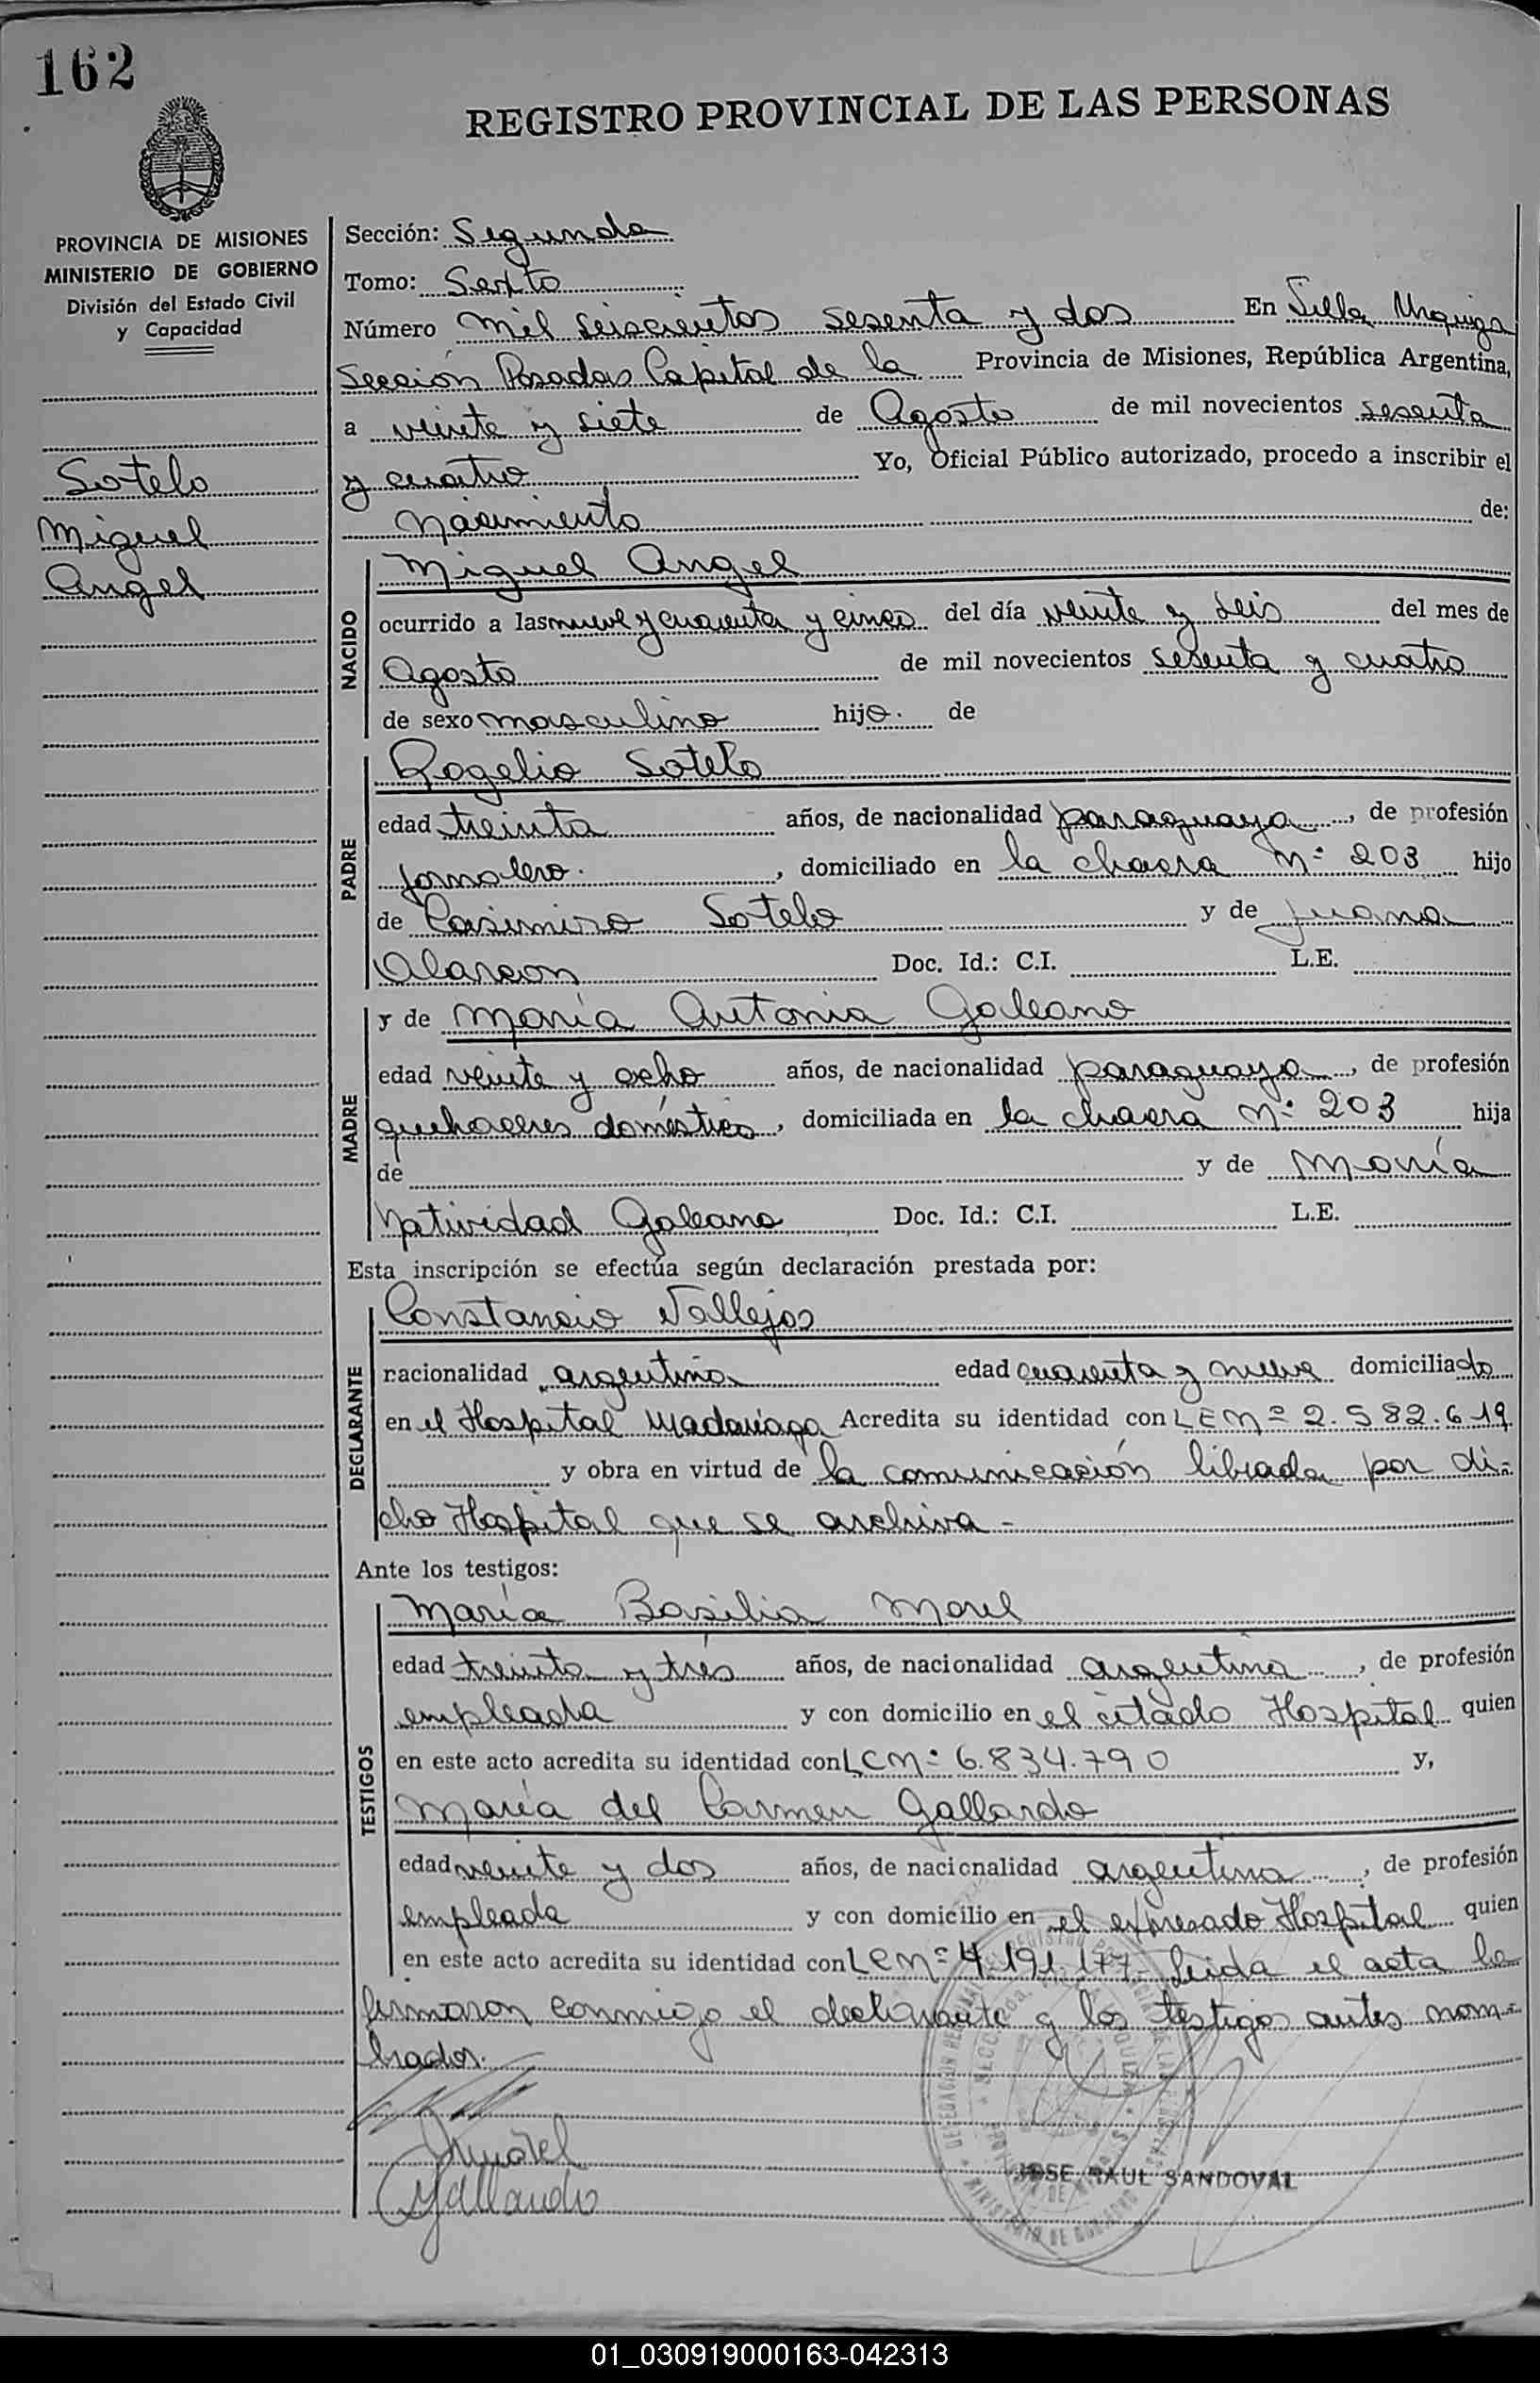 162
REGISTRO PROVINCIAL DE LAS PERSONAS
PROVINCIA DE MISIONES
MINISTERIO DE GOBIERNO
División del Estado Civil
y Capacidad
Sotelo
Miguel
Angel
Sección: Segunda
Tomo: Sexto
Número mil seiscientos sesenta y dos En Villa Urquiza
Sección Posadas Capital de la Provincia de Misiones, República Argentina,
a veinte y siete de Agosto de mil novecientos sesenta
y cuatro Yo, Oficial Público autorizado, procedo a inscribir el
nacimiento de:
NACIDO
Miguel Angel
ocurrido a las nueve y cuarenta y cinco del día veinte y seis del mes de
Agosto de mil novecientos sesenta y cuatro
de sexo masculino hijo. de
PADRE
Rogelio Sotelo
edad treinta años, de nacionalidad paraguaya, de profesión
jornalero. , domiciliado en la chacra Nº 203 hijo
de Casimiro Sotelo y de Juana
Alarcon Doc. Id.: C.I. L.E.
MADRE
y de María Antonia Galeano
edad veinte y ocho años, de nacionalidad paraguaya, de profesión
quehaceres domésticos, domiciliada en la chacra Nº 203 hija
de y de María
Natividad Galeano Doc. Id.: C.I. L.E.
Esta inscripción se efectúa según declaración prestada por:
DECLARANTE
Constancio Vallejos
nacionalidad argentina edad cuarenta y nueve domiciliado
en el Hospital Madariaga Acredita su identidad con LE Nº 2.582.619
y obra en virtud de la comunicación librada por di-
cho Hospital que se archiva -
Ante los testigos:
TESTIGOS
María Basilia Morel
edad treinta y trés años, de nacionalidad argentina, de profesión
empleada y con domicilio en el citado Hospital quien
en este acto acredita su identidad con LC Nº 6.834.790 y,
María del Carmen Gallardo
edad veinte y dos años, de nacionalidad argentina, de profesión
empleada y con domicilio en el expresado Hospital quien
en este acto acredita su identidad con LC Nº 4.191.177- Leida el acta la
firmaron conmigo el declarante y los testigos antes nom-
brados.
Morel
Gallardo
JOSE RAUL SANDOVAL
01_030919000163-042313